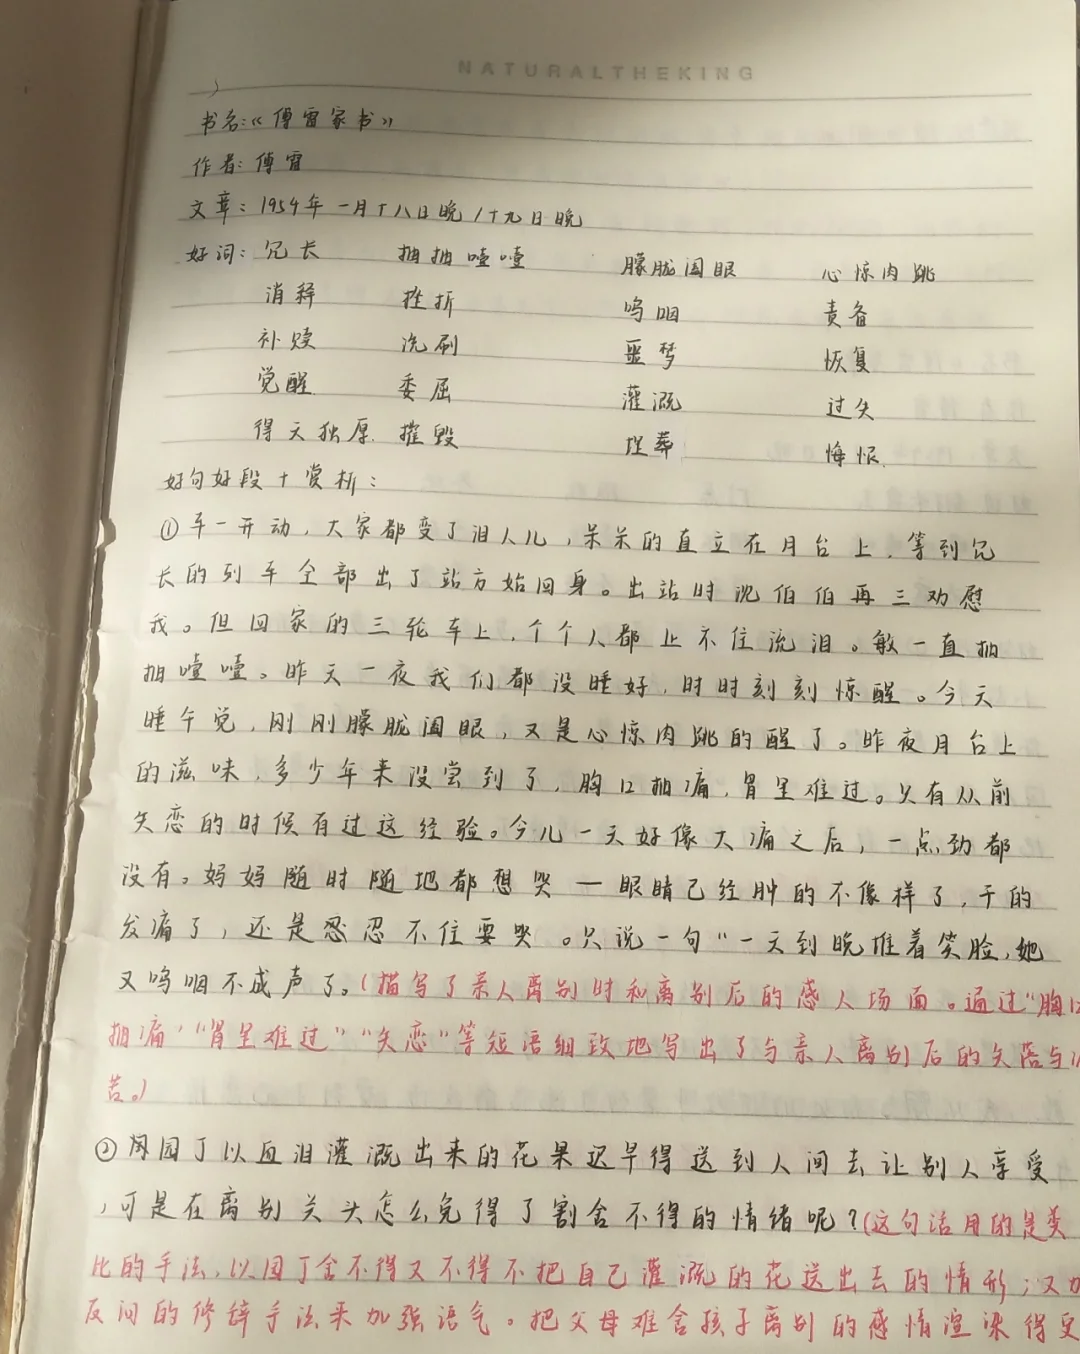 NATURALTHEKING
书名:《傅雷家书》
作者:傅雷
文章:1954年一月十八日晚/十九日晚
好词:冗长 抽抽噎噎 朦胧阖眼 心惊肉跳
消释 挫折 呜咽 责备
补赎 洗刷 噩梦 恢复
觉醒 委屈 灌溉 过失
得天独厚 摧毁 埋葬 悔恨
好句好段+赏析:
①车一开动,大家都变了泪人儿,呆呆的直立在月台上,等到冗
长的列车全部出了站方始回身。出站时沈伯伯再三劝慰
我。但回家的三轮车上,个个人都止不住流泪。敏一直抽
抽噎噎。昨天一夜我们都没睡好,时时刻刻惊醒。今天
睡午觉,刚刚朦胧阖眼,又是心惊肉跳的醒了。昨夜月台上
的滋味,多少年来没尝到了,胸口抽痛,胃里难过。只有从前
失恋的时候有过这经验。今儿一天好像大病之后,一点劲都
没有。妈妈随时随地都想哭—眼睛已经肿的不像样了,干的
发痛了,还是忍忍不住要哭。只说一句“一天到晚堆着笑脸,她
又呜咽不成声了。(描写了亲人离别时和离别后的感人场面。通过“胸口
抽痛”“胃里难过”“失恋”等短语细致地写出了与亲人离别后的失落与
苦。)
②用园丁以血泪灌溉出来的花果迟早得送到人间去让别人享受
,可是在离别关头怎么免得了割舍不得的情绪呢?(这句话用的是类
比的手法,以园丁舍不得又不得不把自己灌溉的花送出去的情形;又
反问的修辞手法来加强语气。把父母难舍孩子离别的感情渲染得更